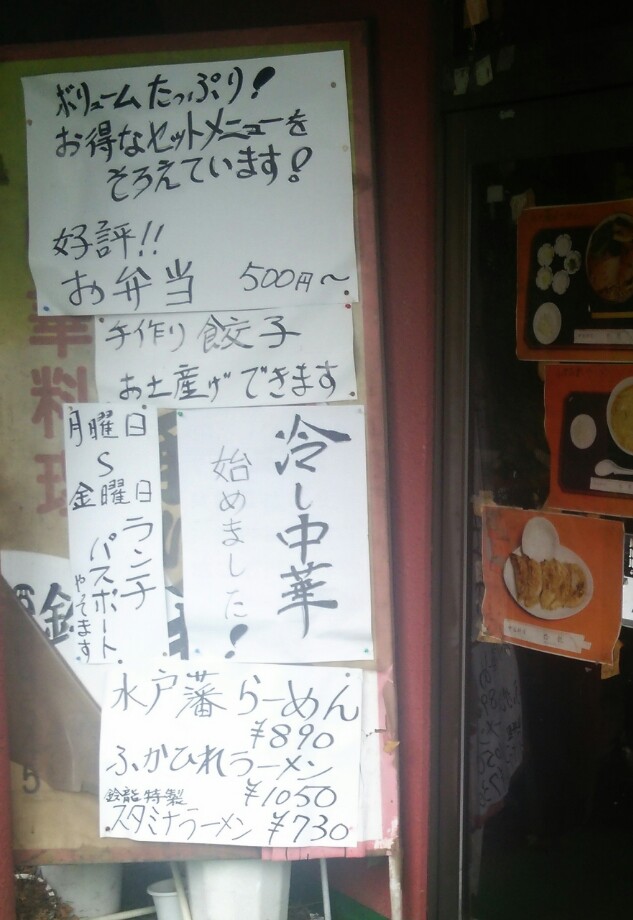 ボリュームたっぷり!
お得なセットメニューを
そろえています!
好評!!
お弁当 500円〜
手作り餃子
お土産げできます
月曜日
〜
金曜日
ランチ
パスポート
やってます
冷し中華
始めました!
水戸藩らーめん
¥890
ふかひれラーメン
¥1050
鈴龍特製
スタミナラーメン ¥730
華料理